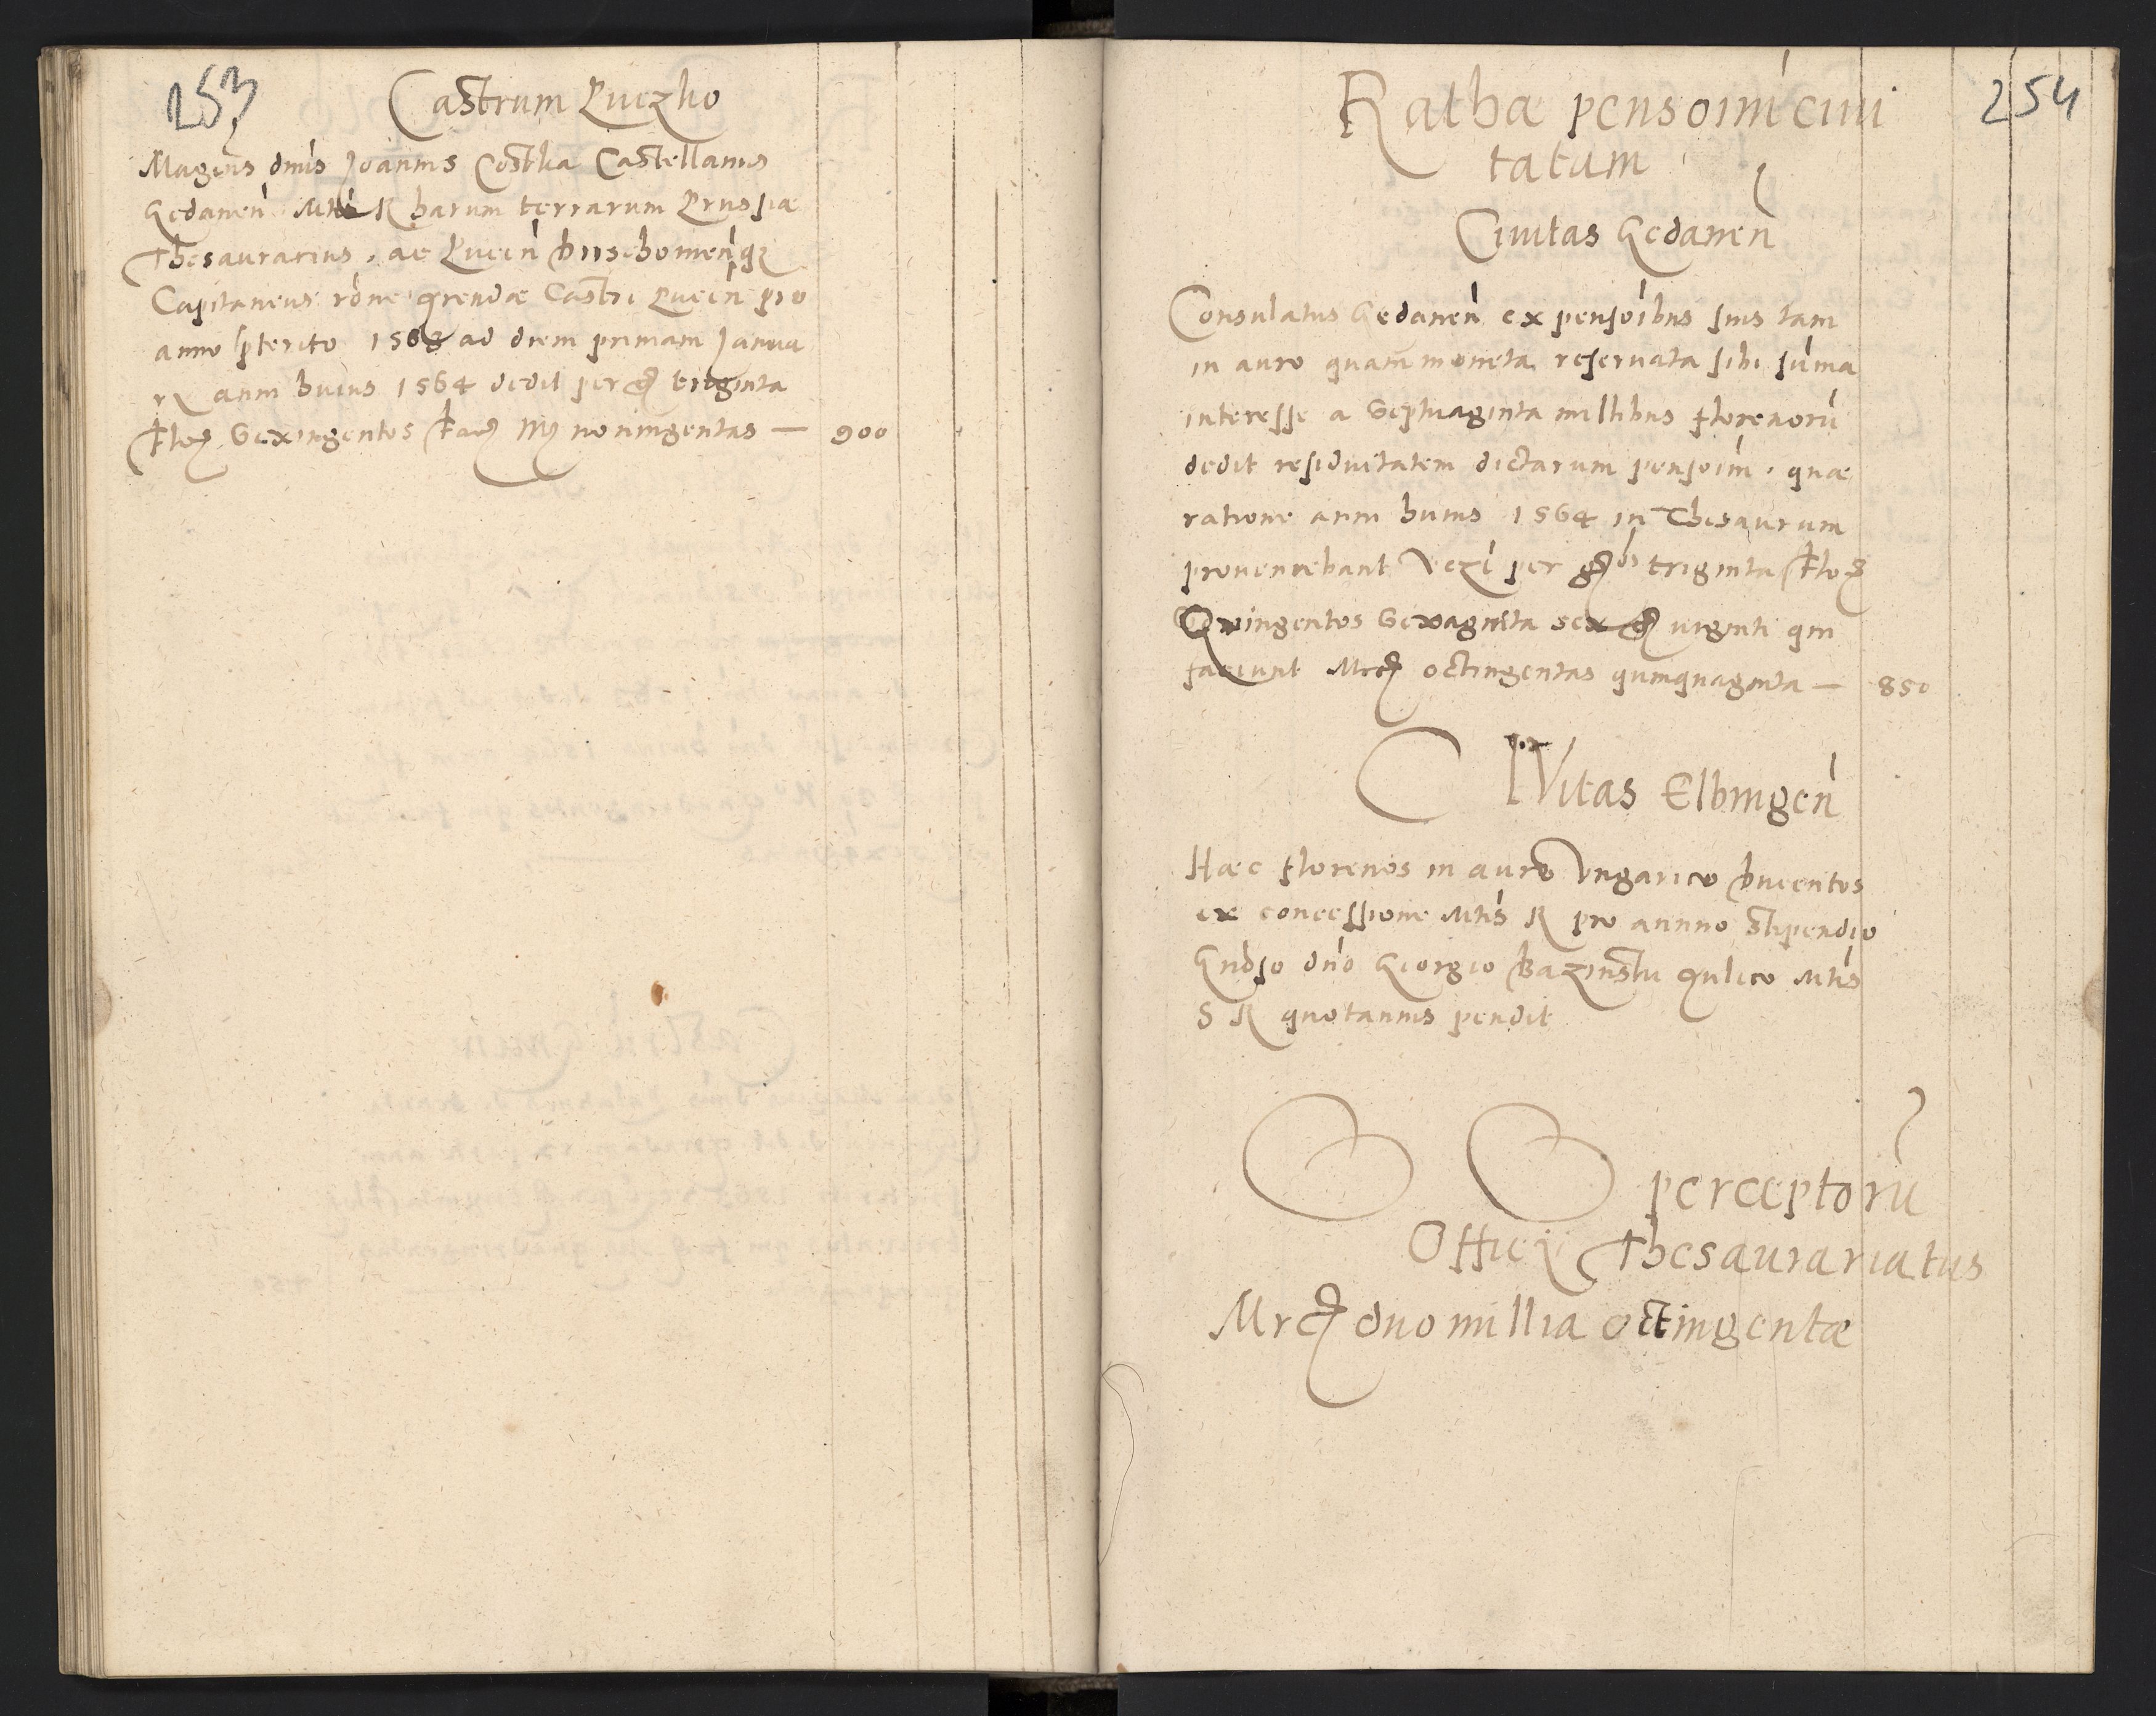 253
Castrum Puczko
Magcus dnus Joannes Costka Castellanus
Gedanen Mtis R harum terrarum Prussiae
Thesaurarius, ac Pucen Dirschovienq
Capitaneus rone arendae Castri Pucen pro
anno pterito 1563 ad diem primam Janua
rii anni huius 1564 dedit per gr triginta
Flor Sexingentos fac Mr noningentas — 900
254
Ratha pensoim civi
tatum
Civitas Gedanen
Consulatus Gedanen ex pensoibus suis tam
in auro quam moneta reservata sibi suma
interesse a Septuaginta millibus florenoru
dedit residuitatem dictarum pensoim, quae
ratione anni huius 1564 in Thesaurum
proveniebant per gr triginta Flor
Quingentos Sexaginta sex gr viginti qui
faciunt Mrc octingentas quinquaginta — 850
CIVitas Elbingen
Haec florenos in auro Ungarico Ducentos
ex concessione Mtis R pro annuo stipendio
Gnoso dno Georgio Aulico Mtis
S R quotannis pendit
perceptoru
Officii Thesaurariatus
Mrc duo millia octingentae